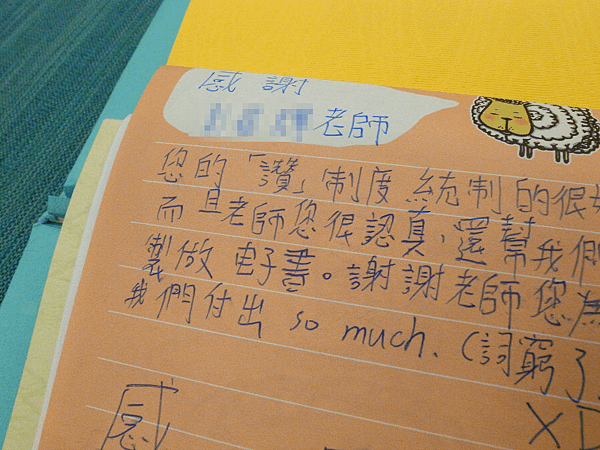 感 謝
老師
您的「讚」制度 統制的很
而且老師您很認真,還幫我們
製做 电子書。謝謝老師您為
我們付出 so much. (詞窮了
XD
感